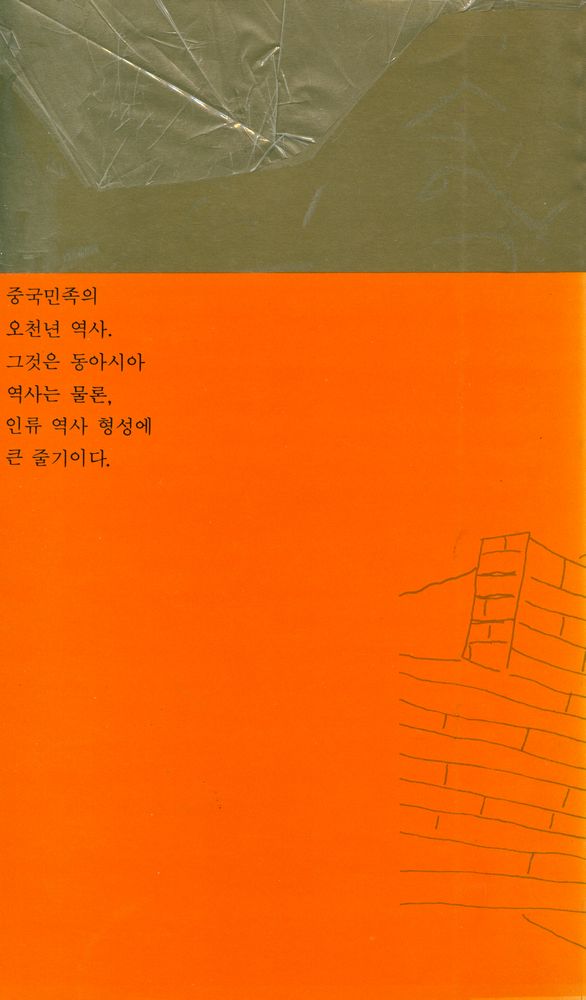 중국민족의
오천년 역사.
그것은 동아시아
역사는 물론,
인류 역사 형성에
큰 줄기이다.